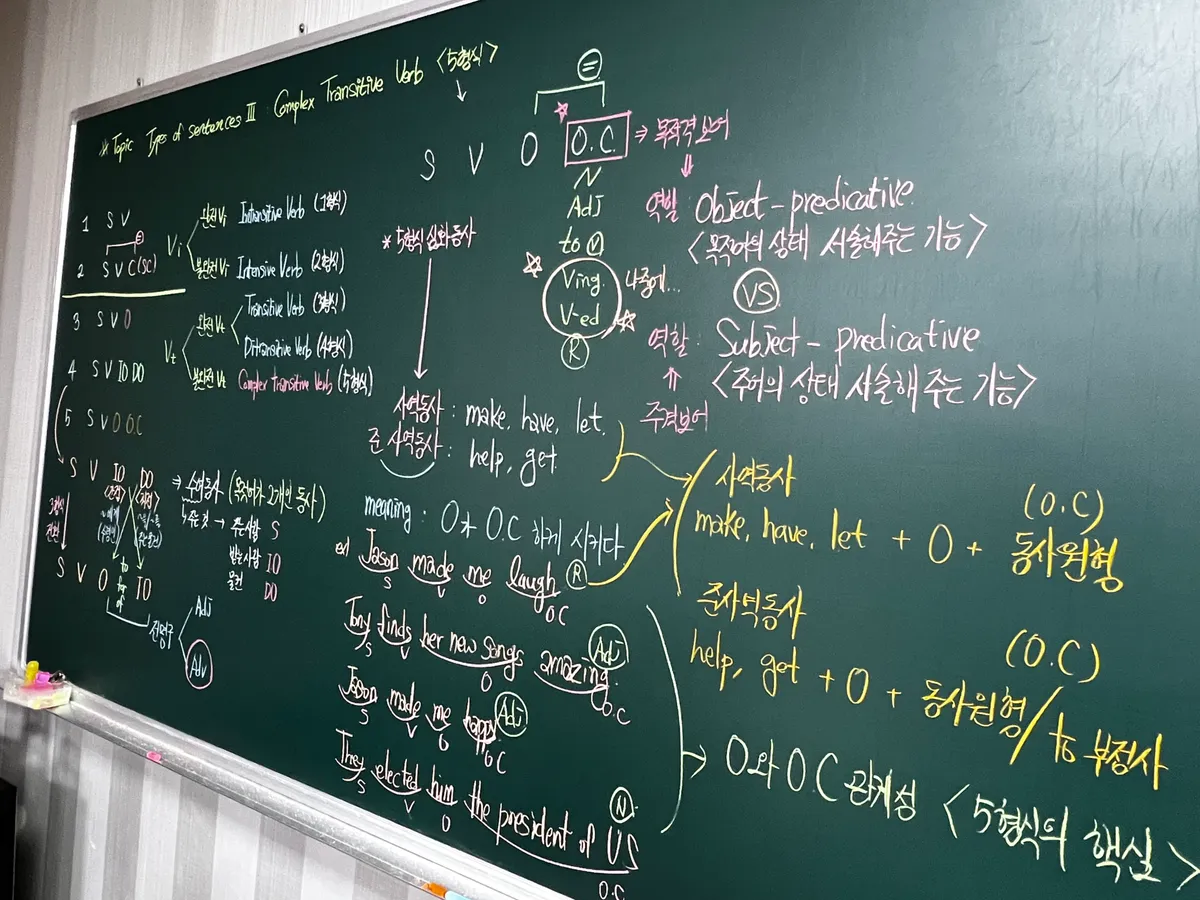 * Topic Types of sentences III Complex Transitive Verb <5형식>
=
S V O O.C. ⇒ 목적격 보어
N
Adj
to ⓥ
Ving 나중에...
V-ed
R
역할 : Object-predicative.
<목적어의 상태 서술해주는 기능>
VS
역할 : Subject-predicative
<주어의 상태 서술해 주는 기능>
주격보어
1 S V
2 S V C(SC)
3 S V O
4 S V IO DO
5 S V O O.C
Vi
완전 Vi Intransitive Verb (1형식)
불완전 Vi Intensive Verb (2형식)
Vt
완전 Vt Transitive Verb (3형식)
Ditransitive Verb (4형식)
불완전 Vt Complex transitive Verb (5형식)
S V IO DO
⇒ 수여동사 (목적어가 2개인 동사)
주는 것 → 주는사람 S
받는사람 IO
물건 DO
3형식
전환
S V O to IO
for
of
전명구
Adj
Adv
* 5형식 심화동사
사역동사 : make, have, let.
준 사역동사 : help, get
meaning : O가 O.C 하게 시키다
ex) Jason made me laugh R
S V O O.C
Tony finds her new songs amazing. Adj
S V O O.C
Jason made me happy Adj
S V O O.C
They elected him the president of US N
S V O O.C
사역동사
(O.C)
make, have, let + O + 동사원형
준사역동사
(O.C)
help, get + O + 동사원형/to 부정사
→ O와 O.C 관계성 <5형식의 핵심>